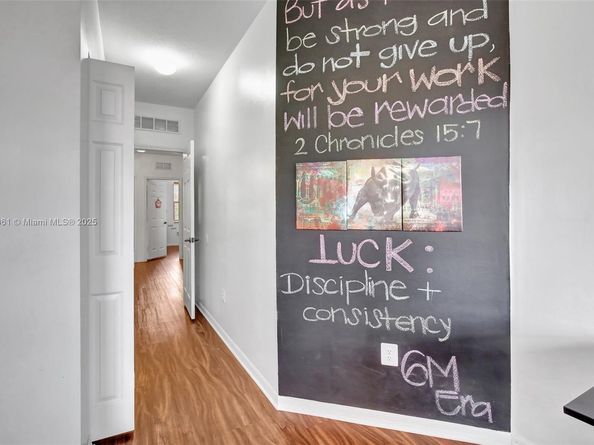 But as
be strong and
do not give up,
for your work
will be rewarded
2 Chronicles 15:7
LUCK:
Discipline +
consistency
6M
Era
361 © Miami MLS® 2025